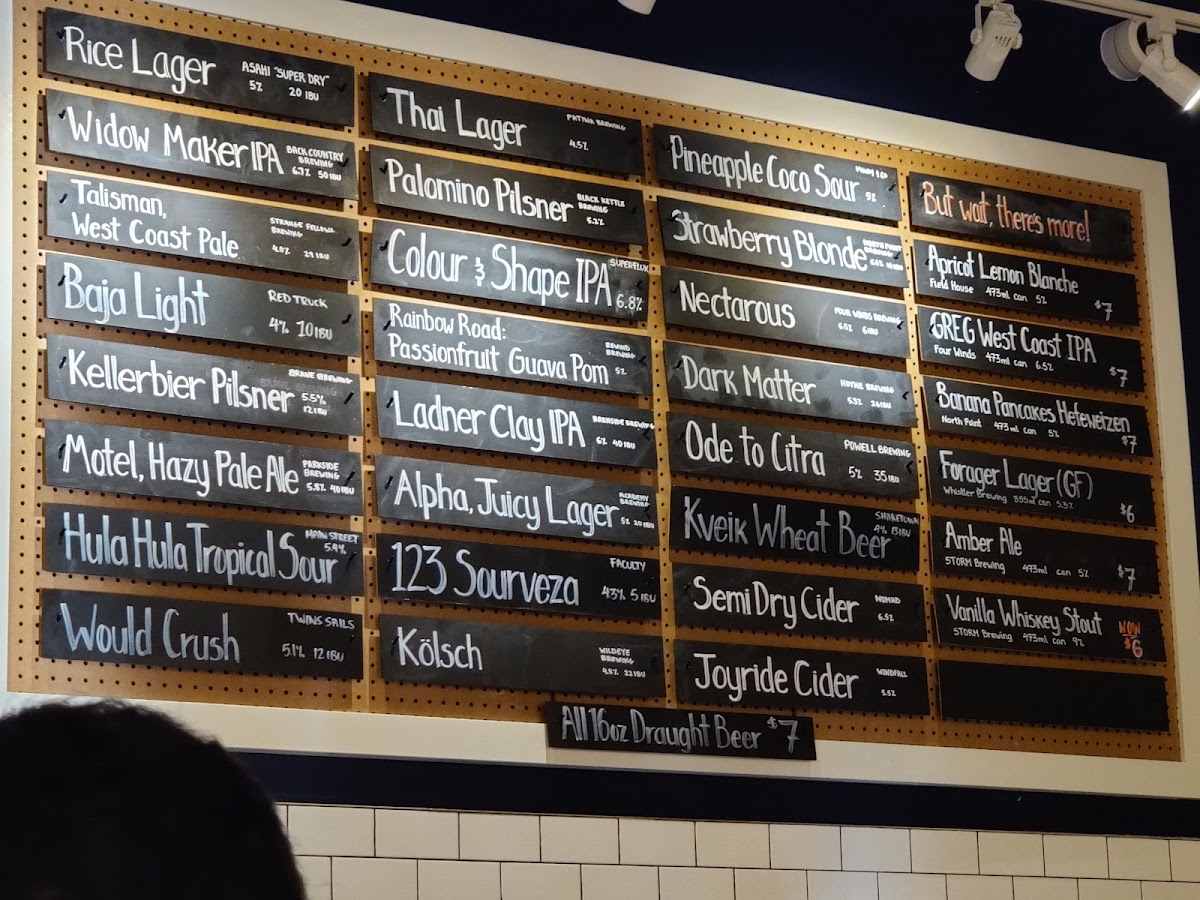 Rice Lager
ASAHI "SUPER DRY"
5% 20 IBU
Widow Maker IPA
BACK COUNTRY
BREWING
6.7% 50 IBU
Talisman,
West Coast Pale
STRANGE FELLOWS
BREWING
4.0%
Baja Light
RED TRUCK
4% 10 IBU
Kellerbier Pilsner
BRAVE BREWING
5.5%
12 IBU
Motel, Hazy Pale Ale
PARKSIDE
BREWING
5.8% 40 IBU
Hula Hula Tropical Sour
MAIN STREET
5.4%
Would Crush
TWINS SAILS
5.1% 12 IBU
Thai Lager
PATINA BREWING
4.5%
Palomino Pilsner
BLACK KETTLE
BREWING
5.2%
Colour & Shape IPA
SUPERFLUX
6.8%
Rainbow Road:
Passionfruit Guava Pom
REWIND
BREWING
5%
Ladner Clay IPA
BARNSIDE BREWING
6% 40 IBU
Alpha, Juicy Lager
ACADEMY
BREWING
5% 20 IBU
123 Sourveza
FACULTY
4.3% 5 IBU
Kölsch
WILDEYE
BREWING
4.8% 22 IBU
Pineapple Coco Sour
5%
Strawberry Blonde
NORTH POINT
BREWING
Nectarous
FOUR WINDS BREWING
6.5% 6 IBU
Dark Matter
HOYNE BREWING
5.3% 26 IBU
Ode to Citra
POWELL BREWING
5% 35 IBU
Kveik Wheat Beer
SMAKETOWN
4% 13 IBU
Semi Dry Cider
NOMAD
6.5%
Joyride Cider
WINDFALL
5.5%
But wait, there's more!
Apricot Lemon Blanche
Field House 473ml can 5%
$7
GREG West Coast IPA
Four Winds 473ml can 6.5%
$7
Banana Pancakes Hefeweizen
North Point 473ml can 5%
$7
Forager Lager (GF)
Whistler Brewing 355ml can 5.3%
$6
Amber Ale
STORM Brewing 473ml can 5%
$7
Vanilla Whiskey Stout
STORM Brewing 473ml can 9%
NOW
$6
All 16oz Draught Beer $7